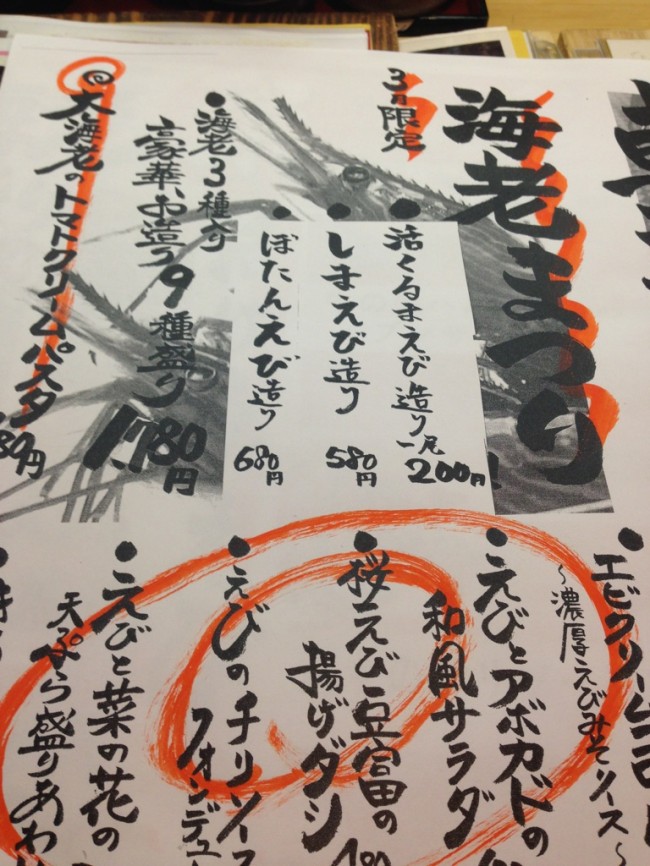 3月限定
海老まつり
活くるまえび造り 一尾 200円
しまえび造り 580円
ぼたんえび造り 680円
海老3種入り
豪華、お造り9種盛り
1,780円
大海老のトマトクリームパスタ
80円
エビクリームコロ
~濃厚えびみそソース~
えびとアボカドの
和風サラダ
桜えび豆富の
揚げダシ
えびのチリソース
フォンデュ
えびと菜の花の
天ぷら盛りあわ